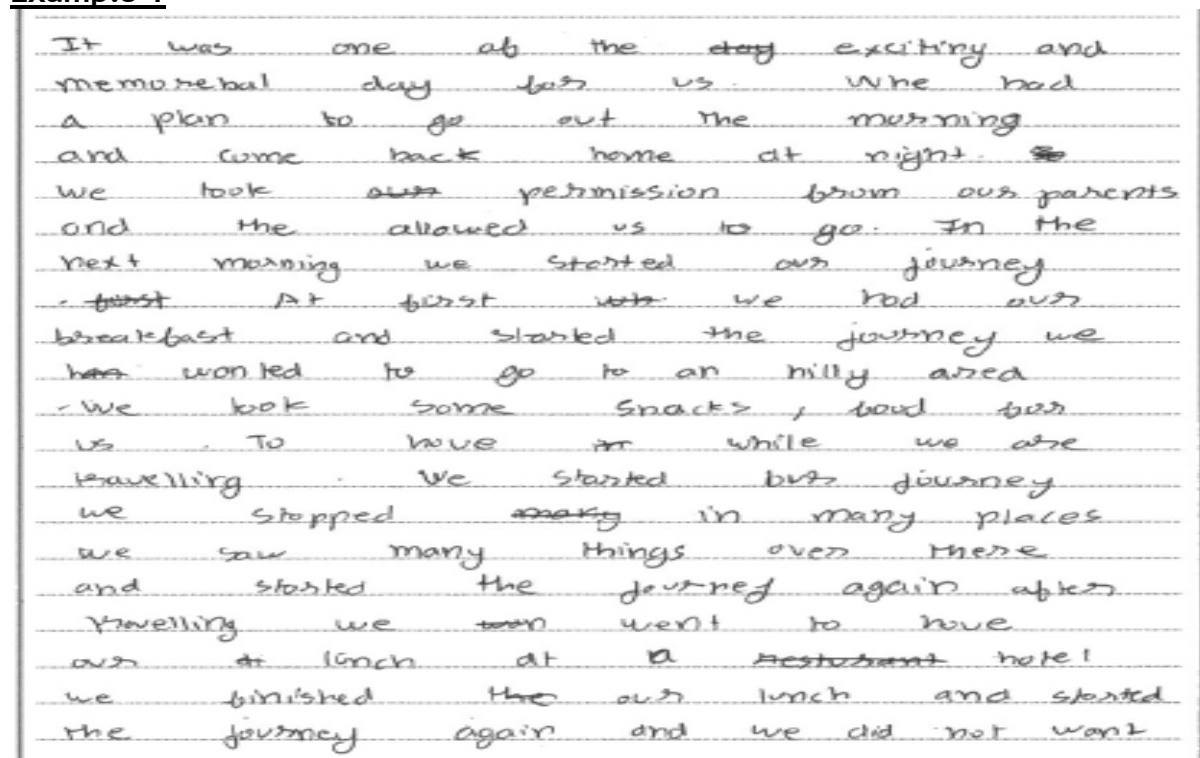 It was one of the day exciting and
memorebal day for us. Whe had
a plan to go out the morning
and come back home at night.
we took our permission from our parents
and the allowed us to go. In the
next morning we started our journey
. first At first we had our
breakfast and started the journey we
wonted to go to an hilly area
- We took some snacks, food for
us. To have while we are
travelling. We started our journey
we stopped many in many places
we saw many things over there
and started the journey again after
travelling we went to have
our lunch at a resturant hotel
we finished the our lunch and started
the journey again and we did not want